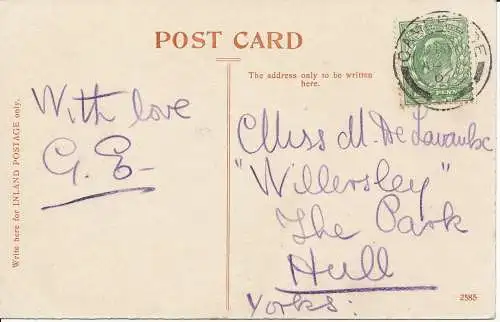 POST CARD
Write here for INLAND POSTAGE only.
The address only to be written
here.
With love
G. E.
Miss M. De
"Willersley"
The Park
Hull
Yorks:
2585
PENNY
07